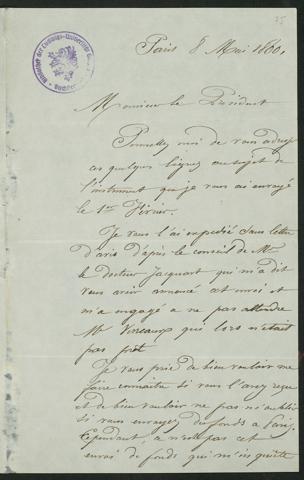 75
Bibliothek der Ludwigs-Universität
Paris 8 Mai 1860.
Monsieur le Président
Permettez moi de vous adresser
ces quelques lignes au sujet de
l'instrument que je vous ai envoyé
le 1er Février.
Je vous l'ai expédié sans lettre
d'avis d'après le conseil de Mr
le docteur Jacquart qui m'a dit
vous avoir annoncé cet envoi et
m'a engagé a ne pas attendre
Mr qui lors n'était
pas prêt
Je vous prie de bien vouloir me
faire connaitre si vous l'avez reçu
et de bien vouloir ne pas m'oublier
si vous envoyez des fonds a Paris.
Cependant, ce n'est pas cet
envoi de fonds qui m'inquiète